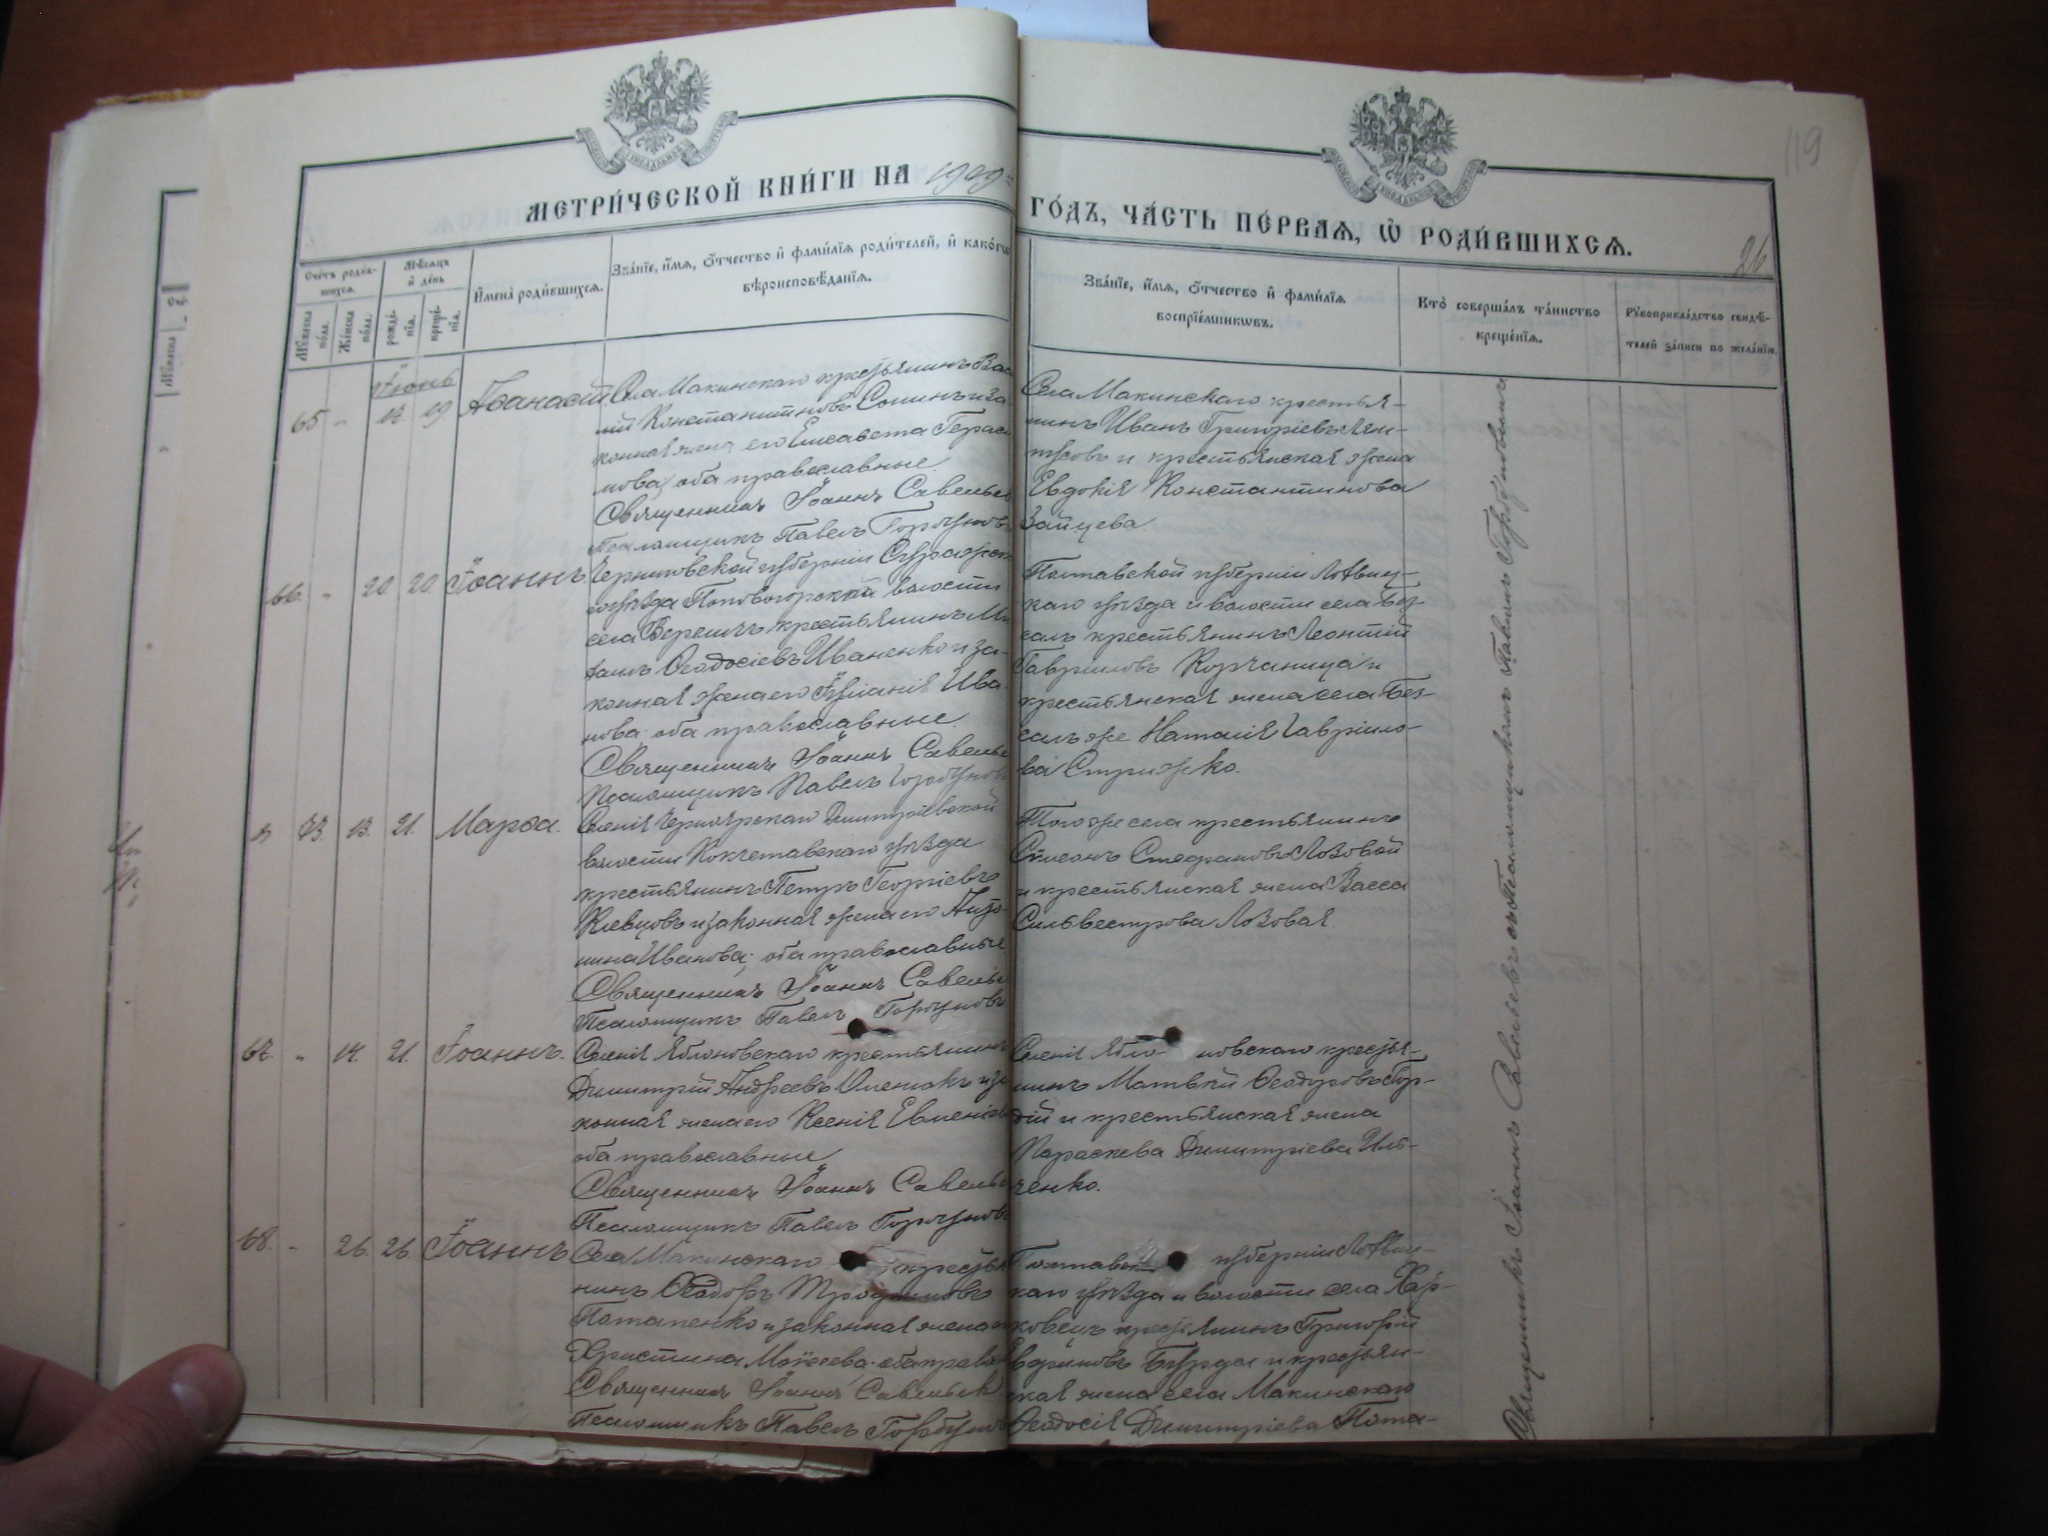 119
МЕТРИ́ЧЕСКОЙ КНИ́ГИ НА 1909
ГО́ДЪ, ЧА́СТЬ ПЕ́РВАѦ, Ѡ҆ РОДИ́ВШИХСѦ.
26
Сче́тъ роди́в-
шихсѧ
Мѣ́сѧцъ
и де́нь
И҆мена̀ роди́вшихсѧ.
Зва́нїе, и҆́мѧ, ѻ҆́тчество и҆ фами́лїѧ роди́телей, и҆ како́гѡ
вѣроисповѣ́данїѧ.
Мꙋ́жеска
по́ла.
Же́нска
по́ла.
рожде́-
нїѧ.
креще́-
нїѧ.
Зва́нїе, и҆́мѧ, ѻ҆́тчество и҆ фами́лїѧ
воспрїе́мникѡвъ.
Кто̀ соверша́лъ та́инство
креще́нїѧ.
Рꙋкоприкла́дство свидѣ́-
телей за́писи по жела́нїю.
Іюнь
65 - 19 Аѳанасій
Села Макинскаго крестьянинъ Вас
лій Константиновъ Сопинъ и за
конная жена его Елисавета Гераси
мова; оба православные.
Священникъ Іоаннъ Савельев
Псаломщикъ Павелъ Горбуновъ
Села Макинскаго крестья-
нинъ Иванъ Григоріевъ
и крестьянская жена
Евдокія Константинова
Зайцева.
66. - 20 20. Іоаннъ
Черниговской губерніи Суражска
го уѣзда Поповогорской волости
села крестьянинъ
Ѳеодосіевъ Иваненко и за-
конная жена его Іуліанія Ива-
нова: оба православные.
Священникъ Іоаннъ Савелье
Псаломщикъ Павелъ Горбуновъ
Полтавской губерніи Лохвиц-
каго уѣзда и волости села Без-
салъ крестьянинъ Леонтій
Гавриловъ и
крестьянская жена села Без-
салъ же Наталія Гаврило-
ва
23. 13. 21. Марѳа.
Селенія Черноярскаго Димитріевской
волости Кокчетавскаго уѣзда
крестьянинъ Петръ Георгіевъ
Клевцовъ и законная жена его Анто-
нина Иванова; оба православные
Священникъ Іоаннъ Савелье
Псаломщикъ Павелъ Горбуновъ
Того же села крестьянинъ
Симеонъ Стефановъ Лозовой
и крестьянская жена Васса
Сильвестрова Лозовая.
67. - 14. 21. Іоаннъ.
Селенія Яблоновскаго крестьянинъ
Димитрій Андреевъ и за
конная жена его Ксенія Евменіева
оба православные
Священникъ Іоаннъ Савелье
Псаломщикъ Павелъ Горбуновъ
Селенія Ябло- новскаго крестья-
нинъ Матвѣй Ѳеодоровъ Гор-
дій и крестьянская жена
Параскева Димитріева Иль-
ченко.
68. - 26. 26. Іоаннъ
Села Макинскаго крестья
нинъ Ѳеодоръ Трофимовъ
Потапенко и законная жена е
Христина Моѵсеева: оба право
Священникъ Іоаннъ Савельев
Псаломщикъ Павелъ Горбуновъ
Полтавской губерніи Лохвиц-
каго уѣзда и волости села Хар-
ковецъ крестьянинъ Григорій
Бурда и крестьян-
ская жена села Макинскаго
Ѳеодосія Димитріева Пота-
Священникъ Іоаннъ Савельевъ съ псаломщикомъ Павломъ Горбуновымъ